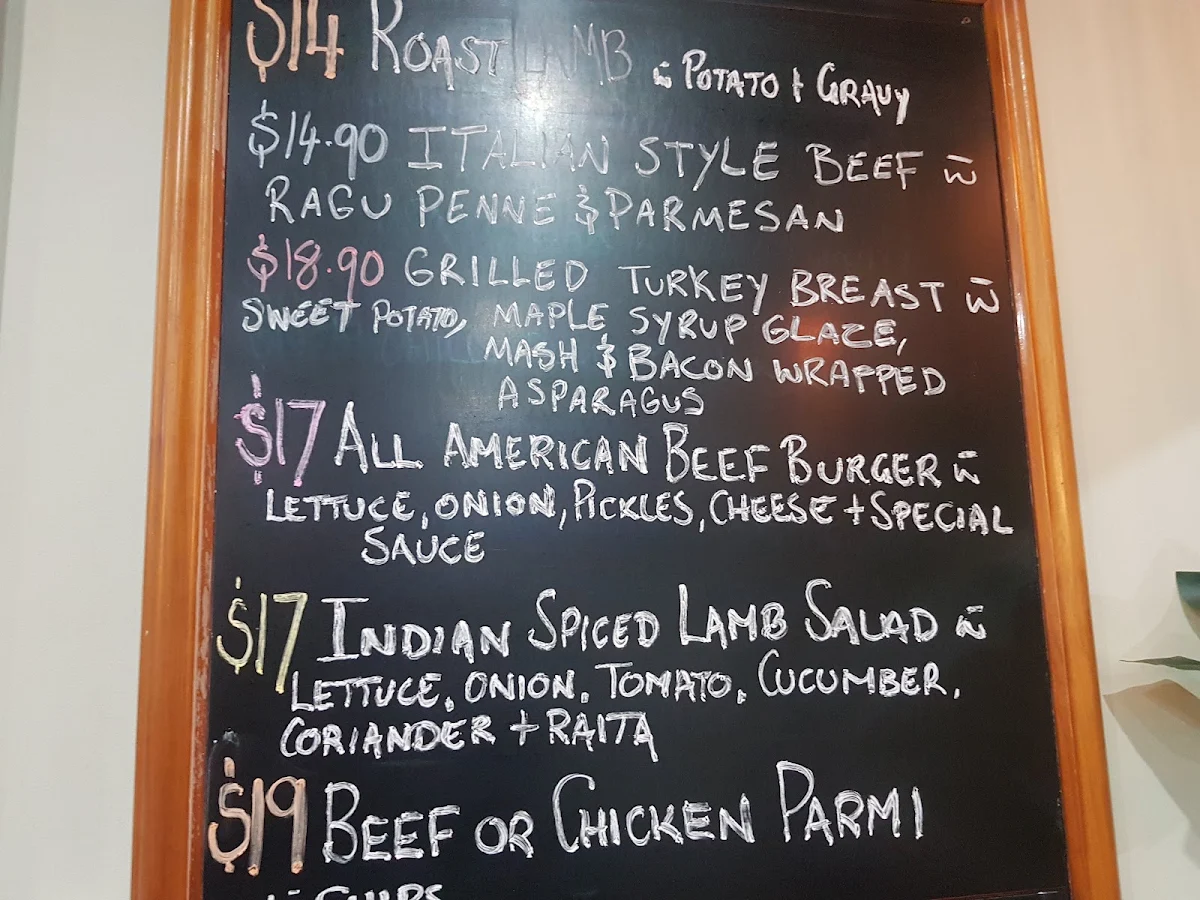 $14 ROAST LAMB w̄ POTATO + GRAVY
$14.90 ITALIAN STYLE BEEF w̄
RAGU PENNE & PARMESAN
$18.90 GRILLED TURKEY BREAST w̄
SWEET POTATO, MAPLE SYRUP GLAZE,
MASH & BACON WRAPPED
ASPARAGUS
$17 ALL AMERICAN BEEF BURGER w̄
LETTUCE, ONION, PICKLES, CHEESE + SPECIAL
SAUCE
$17 INDIAN SPICED LAMB SALAD w̄
LETTUCE, ONION, TOMATO, CUCUMBER,
CORIANDER + RAITA
$19 BEEF OR CHICKEN PARMI
w̄ CHIPS